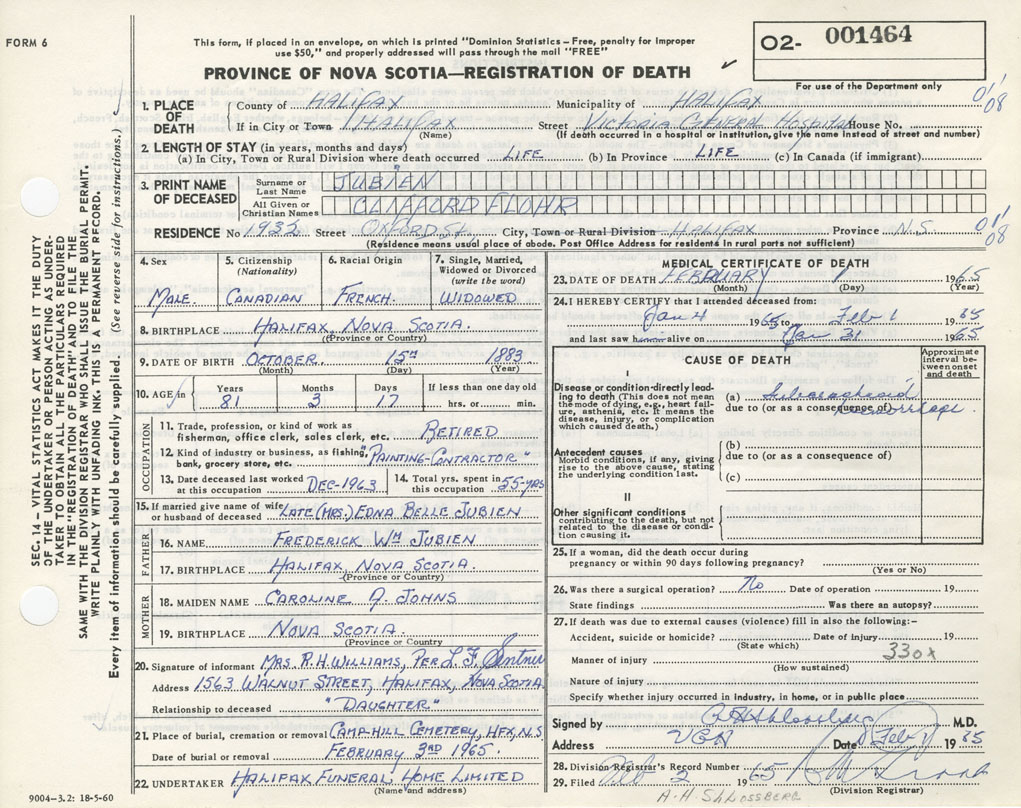 FORM 6
This form, if placed in an envelope, on which is printed "Dominion Statistics – Free, penalty for improper
use $50," and properly addressed will pass through the mail "FREE"
PROVINCE OF NOVA SCOTIA—REGISTRATION OF DEATH
O2- 001464
For use of the Department only
1. PLACE OF DEATH
County of HALIFAX Municipality of HALIFAX
If in City or Town HALIFAX Street Victoria General Hospital House No.
(Name) (If death occurred in a hospital or institution, give its name instead of street and number)
01/08
2. LENGTH OF STAY (in years, months and days)
(a) In City, Town or Rural Division where death occurred LIFE (b) In Province LIFE (c) In Canada (if immigrant)
3. PRINT NAME OF DECEASED
Surname or Last Name JUBIEN
All Given or Christian Names CLIFFORD FLOHR
RESIDENCE No. 1932 Street OXFORD ST. City, Town or Rural Division HALIFAX Province N.S.
(Residence means usual place of abode. Post Office Address for residents in rural parts not sufficient)
01/08
4. Sex 5. Citizenship (Nationality) 6. Racial Origin 7. Single, Married, Widowed or Divorced (write the word)
MALE. CANADIAN FRENCH. WIDOWED
8. BIRTHPLACE HALIFAX, NOVA SCOTIA.
(Province or Country)
9. DATE OF BIRTH OCTOBER 15TH 1883
(Month) (Day) (Year)
10. AGE in Years Months Days If less than one day old
81 3 17 hrs. or min.
OCCUPATION
11. Trade, profession, or kind of work as fisherman, office clerk, sales clerk, etc. RETIRED
12. Kind of industry or business, as fishing, bank, grocery store, etc. "PAINTING-CONTRACTOR"
13. Date deceased last worked at this occupation DEC-1963 14. Total yrs. spent in this occupation 55-YRS
15. If married give name of wife or husband of deceased LATE (MRS.) EDNA BELLE JUBIEN
FATHER
16. NAME FREDERICK WM JUBIEN
17. BIRTHPLACE HALIFAX, NOVA SCOTIA.
(Province or Country)
MOTHER
18. MAIDEN NAME CAROLINE A. JOHNS
19. BIRTHPLACE NOVA SCOTIA.
(Province or Country)
20. Signature of informant MRS. R.H. WILLIAMS, PER L.F.
Address 1563 WALNUT STREET, HALIFAX, NOVA SCOTIA.
Relationship to deceased "DAUGHTER"
21. Place of burial, cremation or removal CAMP-HILL CEMETERY, HFX, N.S
Date of burial or removal FEBRUARY 3RD 1965.
22. UNDERTAKER HALIFAX FUNERAL HOME LIMITED
(Name and address)
9004–3.2: 18-5-60
MEDICAL CERTIFICATE OF DEATH
23. DATE OF DEATH FEBRUARY 1 1965
(Month) (Day) (Year)
24. I HEREBY CERTIFY that I attended deceased from:
Jan 4 1965 to Feb 1 1965
and last saw him alive on Jan 31 1965
CAUSE OF DEATH
Approximate interval between onset and death
I
Disease or condition directly leading to death (This does not mean the mode of dying, e.g., heart failure, asthenia, etc. It means the disease, injury, or complication which caused death.)
(a) Subarachnoid
due to (or as a consequence of) hemorrhage.
Antecedent causes
Morbid conditions, if any, giving rise to the above cause, stating the underlying condition last.
(b)
due to (or as a consequence of)
(c)
II
Other significant conditions
contributing to the death, but not related to the disease or condition causing it.
25. If a woman, did the death occur during pregnancy or within 90 days following pregnancy?
(Yes or No)
26. Was there a surgical operation? No Date of operation 19
State findings Was there an autopsy?
27. If death was due to external causes (violence) fill in also the following:–
Accident, suicide or homicide? Date of injury 19
(State which)
330x
Manner of injury
(How sustained)
Nature of injury
Specify whether injury occurred in industry, in home, or in public place
Signed by M.D.
Address VGH Date Feb 1 1965
28. Division Registrar's Record Number
29. Filed Feb 2 1965
(Division Registrar)
A.H SHLOSSBERG
SEC. 14 – VITAL STATISTICS ACT MAKES IT THE DUTY
OF THE UNDERTAKER OR PERSON ACTING AS UNDER-
TAKER TO OBTAIN ALL THE PARTICULARS REQUIRED
IN THE "REGISTRATION OF DEATH" AND TO FILE THE
SAME WITH THE DIVISION REGISTRAR WHO SHALL ISSUE THE BURIAL PERMIT.
WRITE PLAINLY WITH UNFADING INK. THIS IS A PERMANENT RECORD.
Every item of information should be carefully supplied. (See reverse side for instructions.)